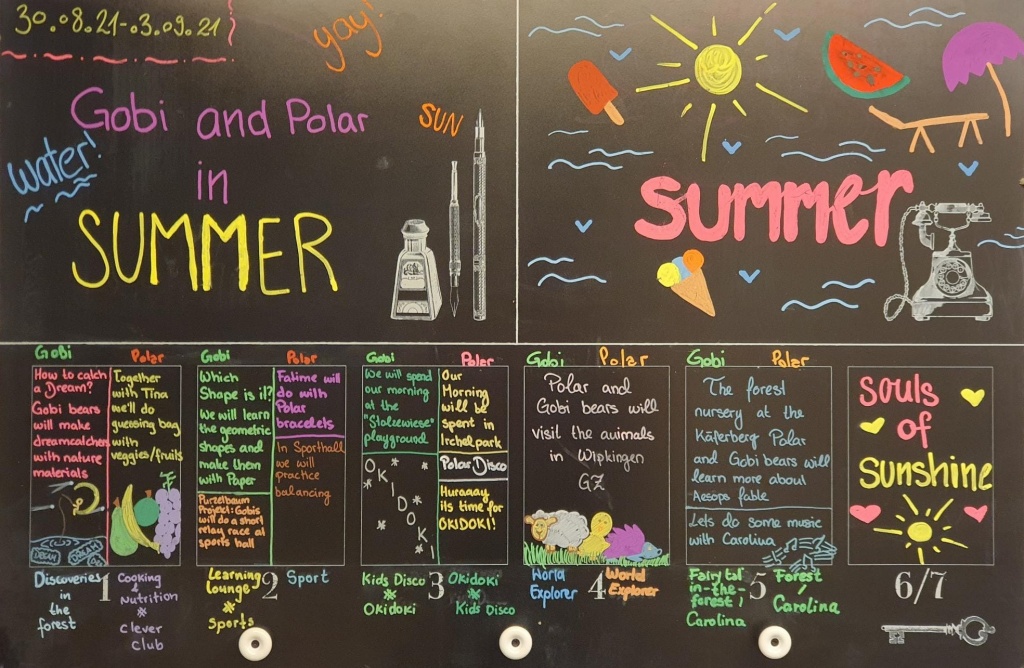 30.08.21-03.09.21
yay!
Gobi and Polar
in
SUMMER
water!
SUN
summer
Gobi Polar
How to catch
a Dream?
Gobi bears
will make
dreamcatcher
with nature
materials
Together
with Tina
we'll do
guessing bag
with
veggies/fruits
Gobi Polar
Which
Shape is it?
We will learn
the geometric
shapes and
make them
with Paper
Purzelbaum
Projekt: Gobis
will do a short
relay race at
sports hall
Fatime will
do with
Polar
bracelets
In Sporthall
we will
practice
balancing
Gobi Polar
We will spend
our morning
at the
"Stolzewiese"
playground
OKIDOKI
Our
Morning
will be
spent in
Irchelpark
Polar Disco
Huraaay
its time for
OKIDOKI!
Gobi Polar
Polar and
Gobi bears will
visit the animals
in Wipkingen
GZ
Gobi Polar
The forest
nursery at the
Käferberg Polar
and Gobi bears will
learn more about
Aesops fable
Lets do some music
with Carolina
souls
of
sunshine
Discoveries
in
the
forest
1
Cooking
&
Nutrition
*
Clever
club
Learning
lounge
*
Sports
2
Sport
Kids Disco
*
Okidoki
3
Okidoki
*
Kids Disco
World
Explorer
4
World
Explorer
Fairytal
in-the-
forest /
Carolina
5
Forest
/
Carolina
6/7